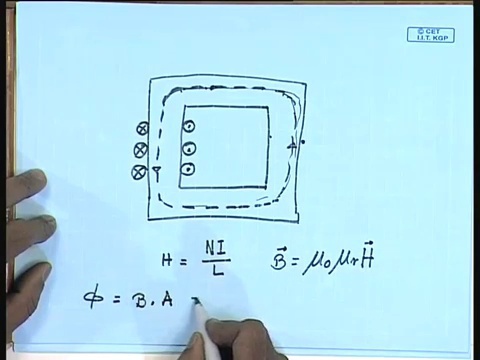 © CET
I.I.T. KGP
H = NI / L
B⃗ = μ₀ μr H⃗
ϕ = B . A =